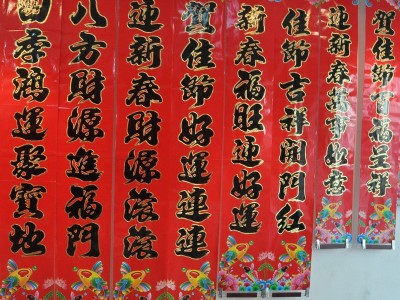 賀佳節百福呈祥
迎新春萬事如意
佳節吉祥開門紅
新春福旺迎好運
賀佳節好運連連
迎新春財源滾滾
八方財源進福門
季鴻運聚寶地